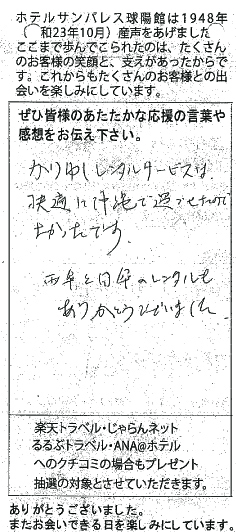 ホテルサンパレス球陽館は1948年
(昭和23年10月)産声をあげました
ここまで歩んでこられたのは、たくさん
のお客様の笑顔と、支えがあったからで
す。これからもたくさんのお客様との出
会いを楽しみにしています。
ぜひ皆様のあたたかな応援の言葉や
感想をお伝え下さい。
かりゆしレンタルサービスは、
快適に沖縄で過ごせたので
よかったです。
雨傘と日傘のレンタルも
ありがとうございました。
楽天トラベル・じゃらんネット
るるぶトラベル・ANA@ホテル
へのクチコミの場合もプレゼント
抽選の対象とさせていただきます。
ありがとうございました。
またお会いできる日を楽しみにしています。